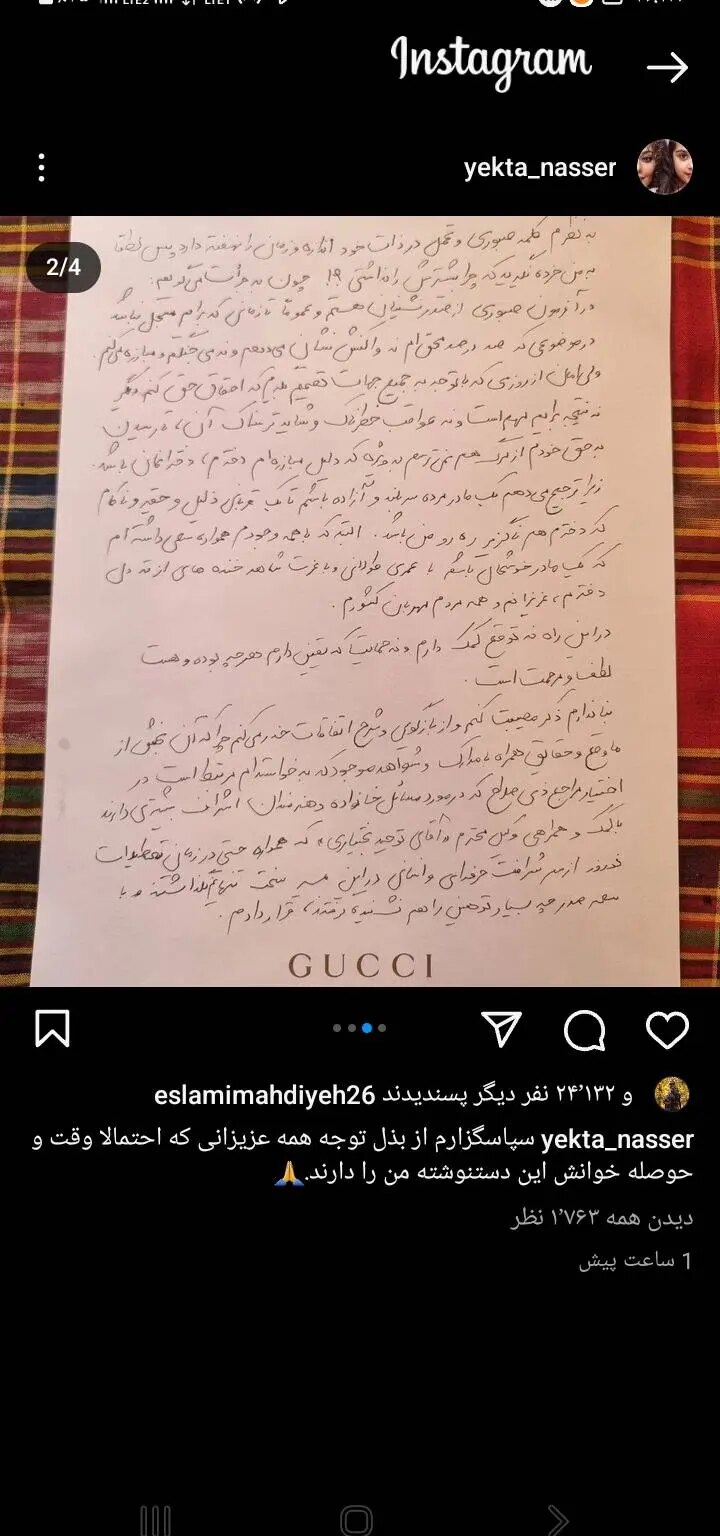 Instagram
yekta_nasser
2/4
به نظرم کلمه صبوری و تحمل در ذات خود اندازه و زمانی را نهفته دارد پس لطفا
به من خرده نگیرید که چرا بیشترش را نداشتی ؟! چون به جرأت می‌گویم:
در آزمون صبوری از صدرنشینان هستم و عموماً تا زمانی که برایم متحمل باشد
در موضوعی که صد در صد محق ام نه واکنش نشان می‌دهم و نه می‌جنگم و مبارزه می‌کنم.
ولی امان از روزی که با توجه به جمیع جهات تصمیم بگیرم که احقاق حق کنم دیگر
نه نتیجه برایم مهم است و نه عواقب خطرناک و شاید ترسناک آن، تا رسیدن
به حق خودم از مرگ هم نمی‌ترسم به ویژه که دلیل مبارزه‌ام دخترم، دخترانمان باشد.
زیرا ترجیح می‌دهم یک مادر مرده سربلند و آزاده باشم تا یک قربانی ذلیل و حقیر و ناکام
که دخترم هم ناگزیر ره رو من باشد. البته که با همه وجودم همواره سعی داشته ام
که یک مادر خوشحال باشم با عمری طولانی و با عزت شاهد خنده های از ته دل
دخترم، عزیزانم و همه مردم مهربان کشورم.
در این راه نه توقع کمک دارم و نه حمایت که یقین دارم هر چه بوده و هست
لطف و مرحمت است.
بنا ندارم ذکر مصیبت کنم و از بازگویی و شرح اتفاقات حذر می‌کنم چرا که آن بخش از
ماوقع و حقایق همراه با مدارک و شواهد موجود که به خواسته‌ام مرتبط است در
اختیار مراجع ذی صلاح که در مورد مسائل خانواده و هنرمندان اشراف بیشتری دارند
با کمک و همراهی وکیل محترم «آقای توحید بختیاری» که همواره حتی در زمان تعطیلات
نوروز از سر شرافت حرفه‌ای و انسانی در این مسیر سخت تنهایم نگذاشتند و با
سعه صدر چه بسیار توهین را هم نشنیده گرفتند، قرار دادم.
GUCCI
eslamimahdiyeh26 و ۲۴٬۱۳۲ نفر دیگر پسندیدند
yekta_nasser سپاسگزارم از بذل توجه همه عزیزانی که احتمالا وقت و
حوصله خوانش این دستنوشته من را دارند.🙏
دیدن همه ۱٬۷۶۳ نظر
1 ساعت پیش